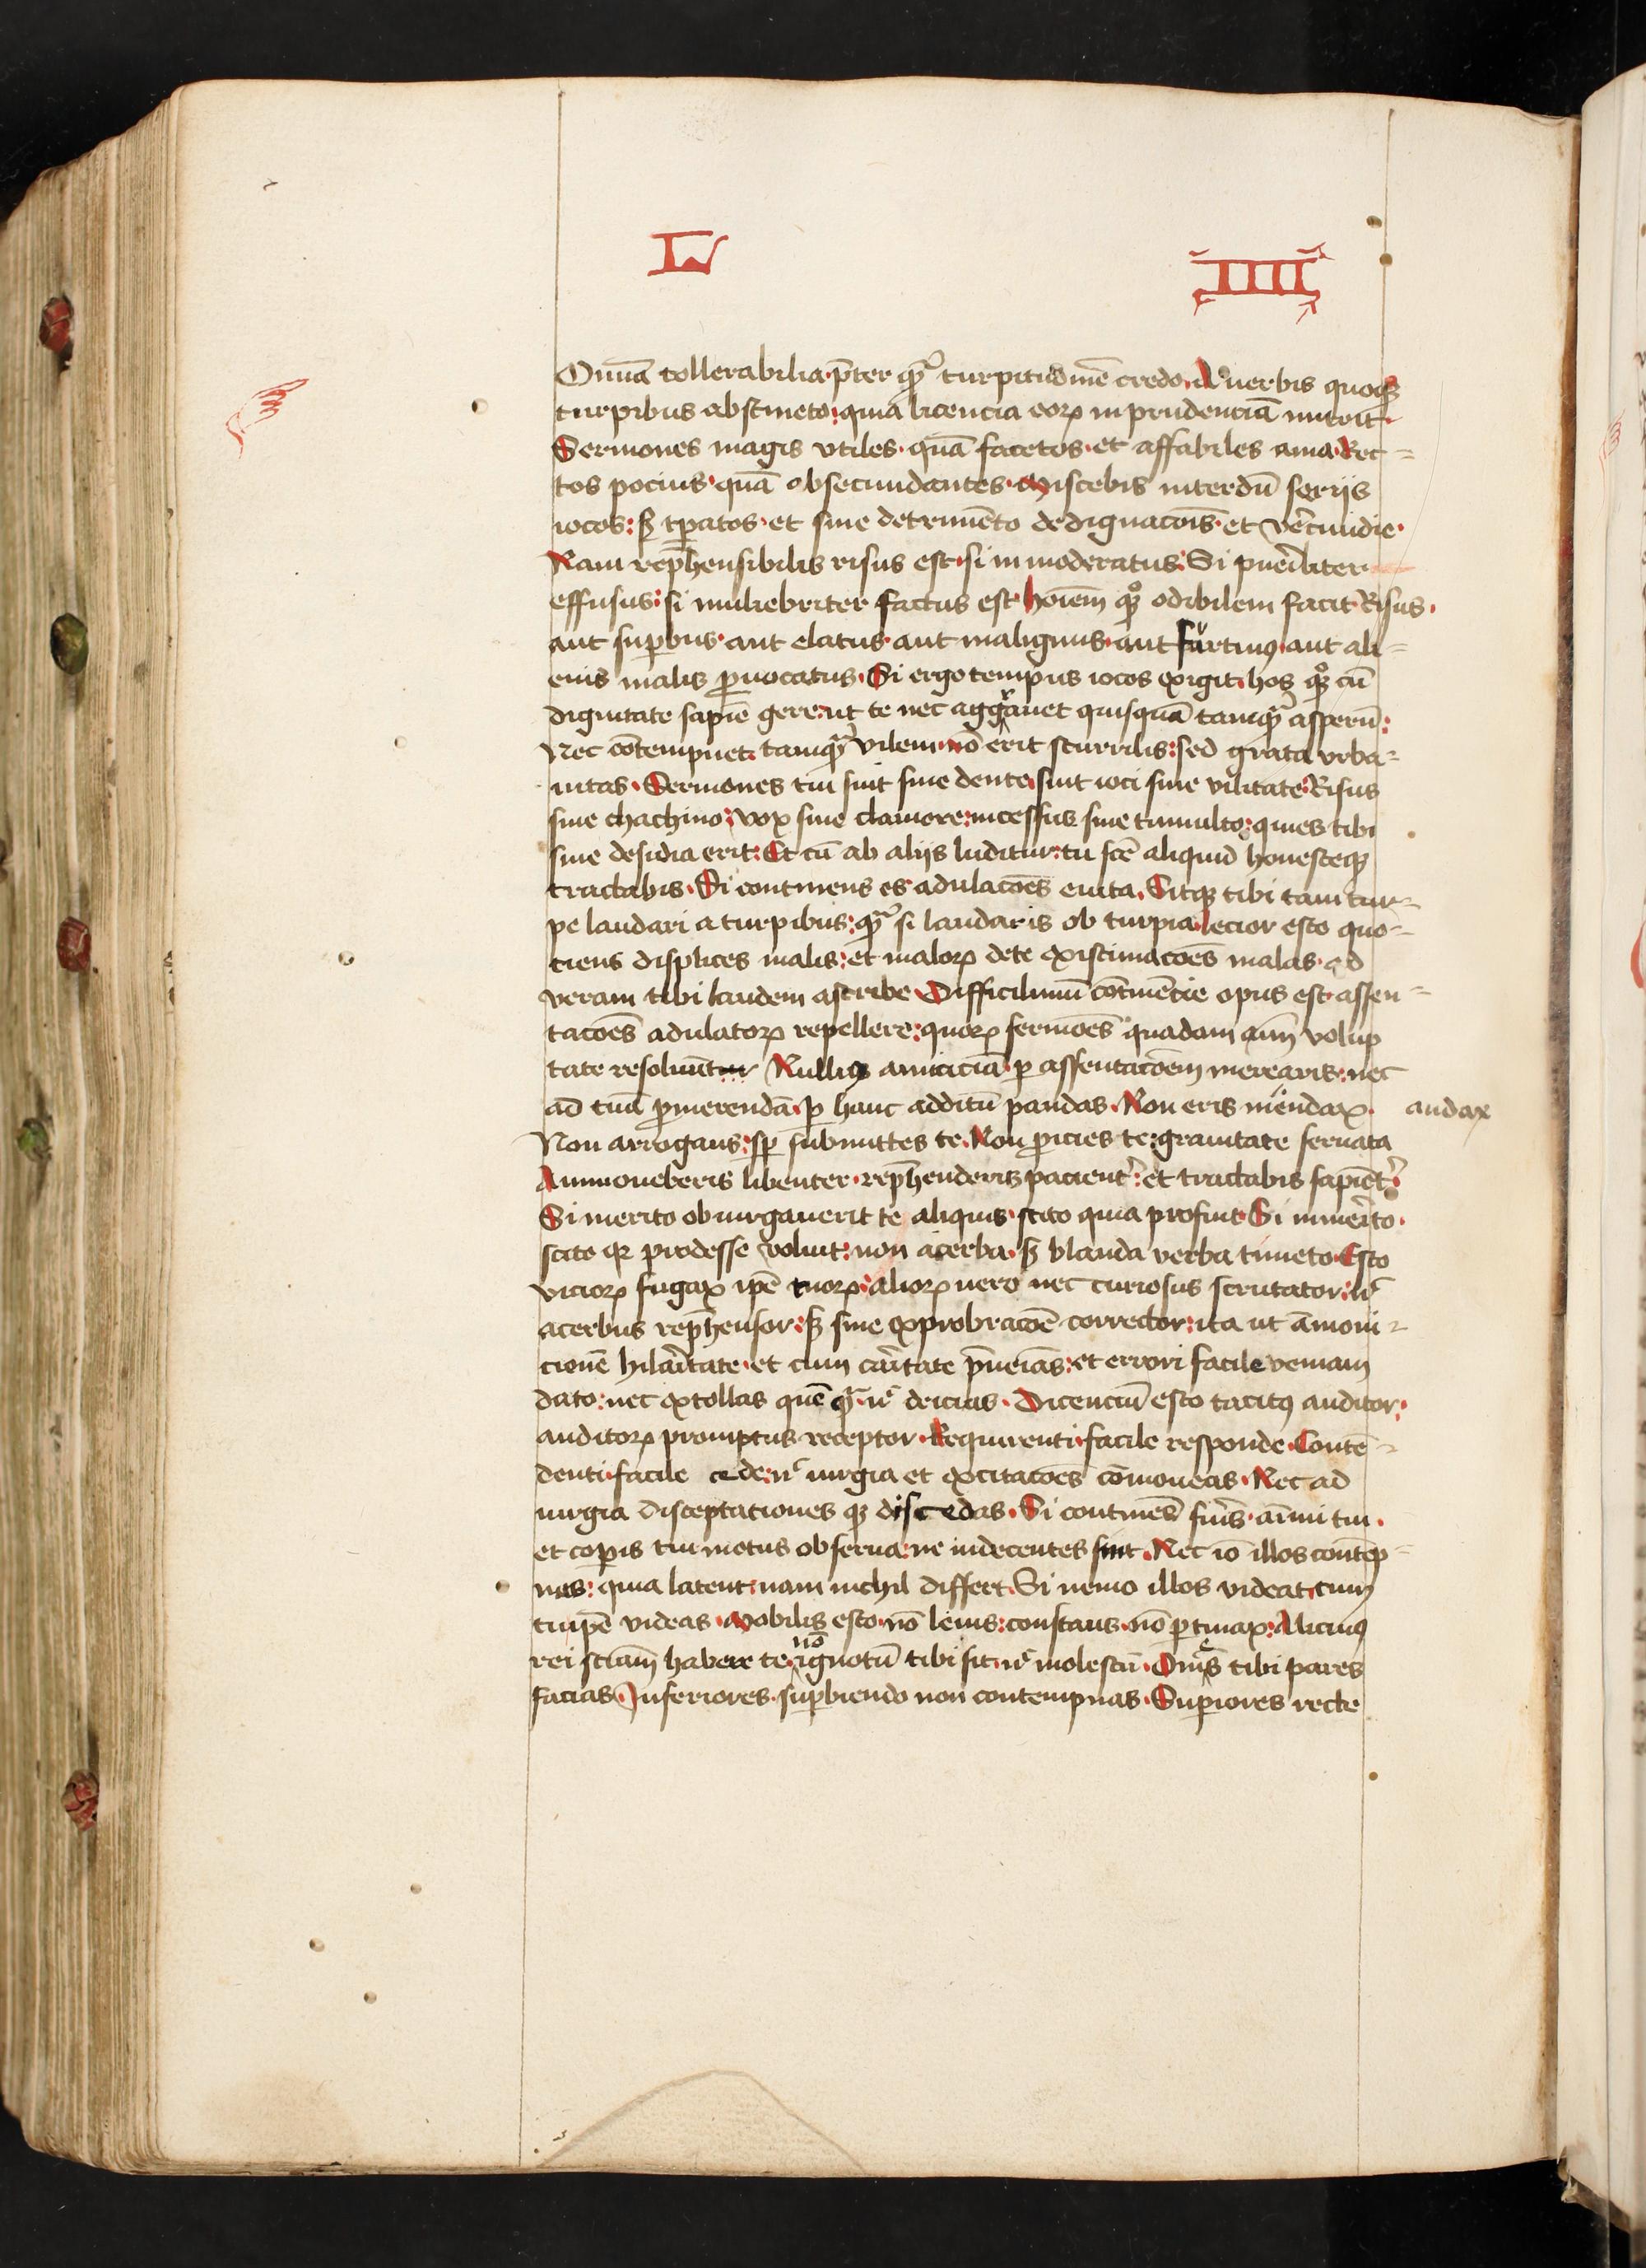 L IIII
Omīa tollerabilia p̄ter qͣ turpitudinē credo A uerbis quoqꝫ
turpibus abstineto: quia licencia eoꝝ inprudenciā nutrit
Sermones magis vtiles quā facetos et affabiles ama Rec=
tos pocius quā obsecundantes Miscebis interdū serijs
iocos: sꝫ tꝑatos et sine detrimēto dedignacōis et vēcundie
Nam rep̄hensibilis risus est si inmoderatus Si puēiliter
effusus: si muliebriter factus est hoīem qꝫ odibilem facit Risus
aut suꝑbus aut elatus aut malignus aut furtiuꝰ aut ali=
enis malis ꝓuocatus Si ergo tempus iocos exigit hos qꝫ cū
dignitate sapiē gere: ut te nec aggrauet quisquā tamqͣ asperū:
Nec cōtempnet tamqͣ vilem nō erit scurrilis: sed grata vrba=
nitas Sermones tui sint sine dente sint ioci sine vilitate Risus
sine chachino: vox sine clamore: incessus sine tumulto: quies tibi
sine desidia erit: Et cū ab alijs luditur: tu scē aliquid honesteqꝫ
tractabis Si continens es adulacōes euita Sitqꝫ tibi tam tur=
pe laudari a turpibus: qͣ si laudaris ob turpia lecior esto quo=
ciens displices malis: et maloꝝ de te existimacōes malas ad
veram tibi laudem ascribe Difficilimū cōtinēcie opus est assen=
tacōes adulatoꝝ repellere: quoꝝ sermōes quadam aīm volup
tate resoluūt Nulliꝰ amiciciā ꝑ assentacōem merearis: nec
ad tuā ꝓmerendā ꝑ hanc additū pandas Non eris mendax audax
Non arrogans: sꝑ submittes te Non ꝓicies te: grauitate seruata
Ammoneberis libenter rep̄henderis pacient̄: et tractabis sapiēt̄
Si merito obiurgauerit te aliquis scito quia profuit Si inmērito
scito qꝛ prodesse voluit: non acerba sꝫ blanda verba timeto Esto
vicioꝝ fugax ip̄e tuoꝝ: alioꝝ uero nec curiosus scrutator: n̄
acerbus rep̄hensor: sꝫ sine exprobracōe corrector: ita ut āmoni=
cionē hilāitate et cum cāitate p̄ueias: et errori facile veniam
dato: nec extollas quē qͣ n̄ deicias Dicenciū esto tacitꝰ auditor
auditoꝝ promptus receptor Requirenti facile responde Contē=
denti facile cede: n̄ iurgia et excitacōes cōmoueas Nec ad
iurgia disceptationes qꝫ discedas Si continēs fūis aīmi tui
et coꝑis tui motus obserua: ne indecentes sint Nec iō illos contēp=
nas: quia latent: nam nichil differt Si nemo illos videat cum
tu ip̄e videas Mobilis esto nō leuis: constans nō ꝑtinax: Alicuiꝰ
rei sciām habere te nō ignotū tibi sit n̄ molestū Om̄es tibi pares
facias Inferiores suꝑbiendo non contempnas Suꝑiores recte